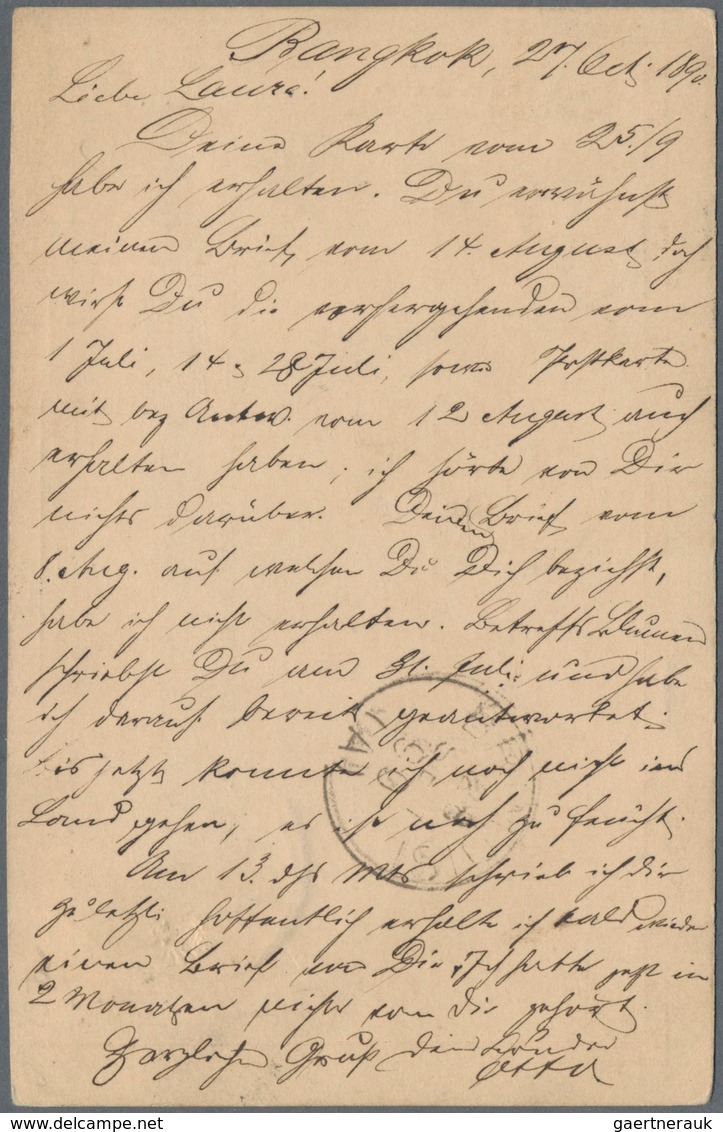 Bangkok, 27. Oct. 1890.
Liebe Laura!
Deine Karte vom 25./9
habe ich erhalten. Du erwähnst
meinen Brief vom 14. August doch
wirst Du die vorhergehenden vom
1 Juli, 14 & 28 Juli, sowie Postkarte
mit bez Antw. vom 12 August auch
erhalten haben, ich hörte von Dir
nichts darüber. Deinen Brief vom
8. Aug. auf welchen Du Dich beziehst,
habe ich nicht erhalten. Betreffs Blumen
schriebst Du am 31. Juli und habe
ich darauf bereits geantwortet.
Bis jetzt konnte ich noch nicht ins
Land gehen, es ist noch zu feucht.
Am 13. dss Mts schrieb ich dir
zuletzt hoffentlich erhalte ich bald wieder
einen Brief von Dir. Ich hatte jetzt in
2 Monaten nichts von dir gehört.
Herzlichen Gruß dein Bruder
Otto
gaertnerauk